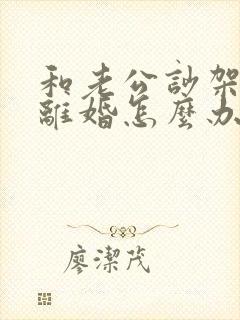 和老公訪架
離婚怎麼办
廖潔茂